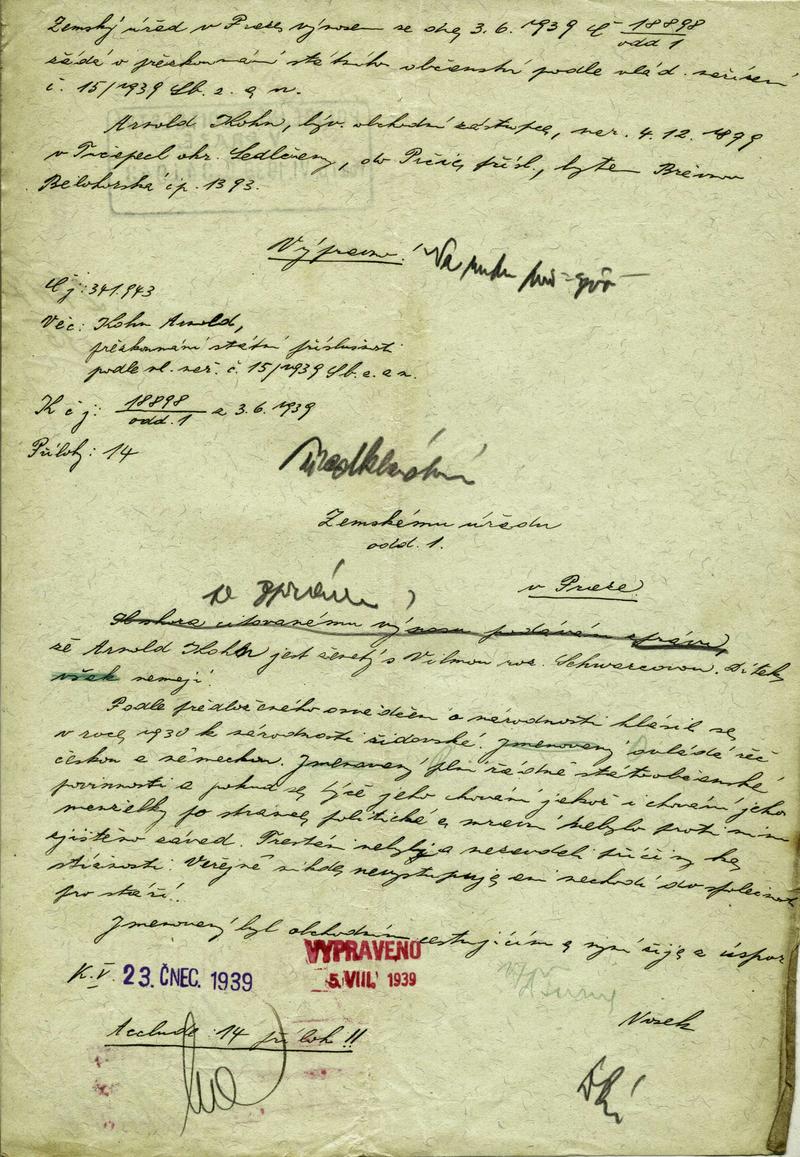 Zemský úřad v Praze výnosem ze dne 3.6.1939 čj 18898
odd 1
žádá o přezkoumání státního občanství podle vlád. nařízení
č. 15/1939 Sb. z. a n.
Arnold Kohn, býv. obchodní zástupce, nar. 4.12.1899
v okr. Sedlčany, do přísl., bytem Břevnov
Bělohorská čp. 1393.
Výprava!
Čj: 341.943
Věc: Kohn Arnold,
přezkoumání státní příslušnosti
podle vl. nař. č. 15/1939 Sb. z. a n.
K čj: 18898 z 3.6.1939
odd. 1
Příloh: 14
Předkládání
Zemskému úřadu
odd. 1.
v Praze
se zprávou,
Shora citovanému výnosu podávám zprávu,
že Arnold Kohn jest ženatý s Vilmou roz. Schwarzovou. Dítek
však nemají.
Podle předloženého osvědčení o národnosti hlásil se
v roce 1930 k národnosti židovské. Jmenovaný ovládá řeč
českou a německou. Jmenovaný plní řádně státoobčanské
povinnosti a pokud se týče jeho chování jakož i chování jeho
manželky po stránce politické a mravní nebylo proti nim
zjištěno závad. Trestán nebyl a nezavdali příčiny ke
stížnosti. Veřejně nikde nevystupují ani nechodí do společnosti
pro stáří.
Jmenovaný byl obchodním cestujícím a nyní žije z úspor
K.V. 23. ČNEC. 1939
VYPRAVENO
5. VIII. 1939
Nosek
Acclude 14 příloh!!